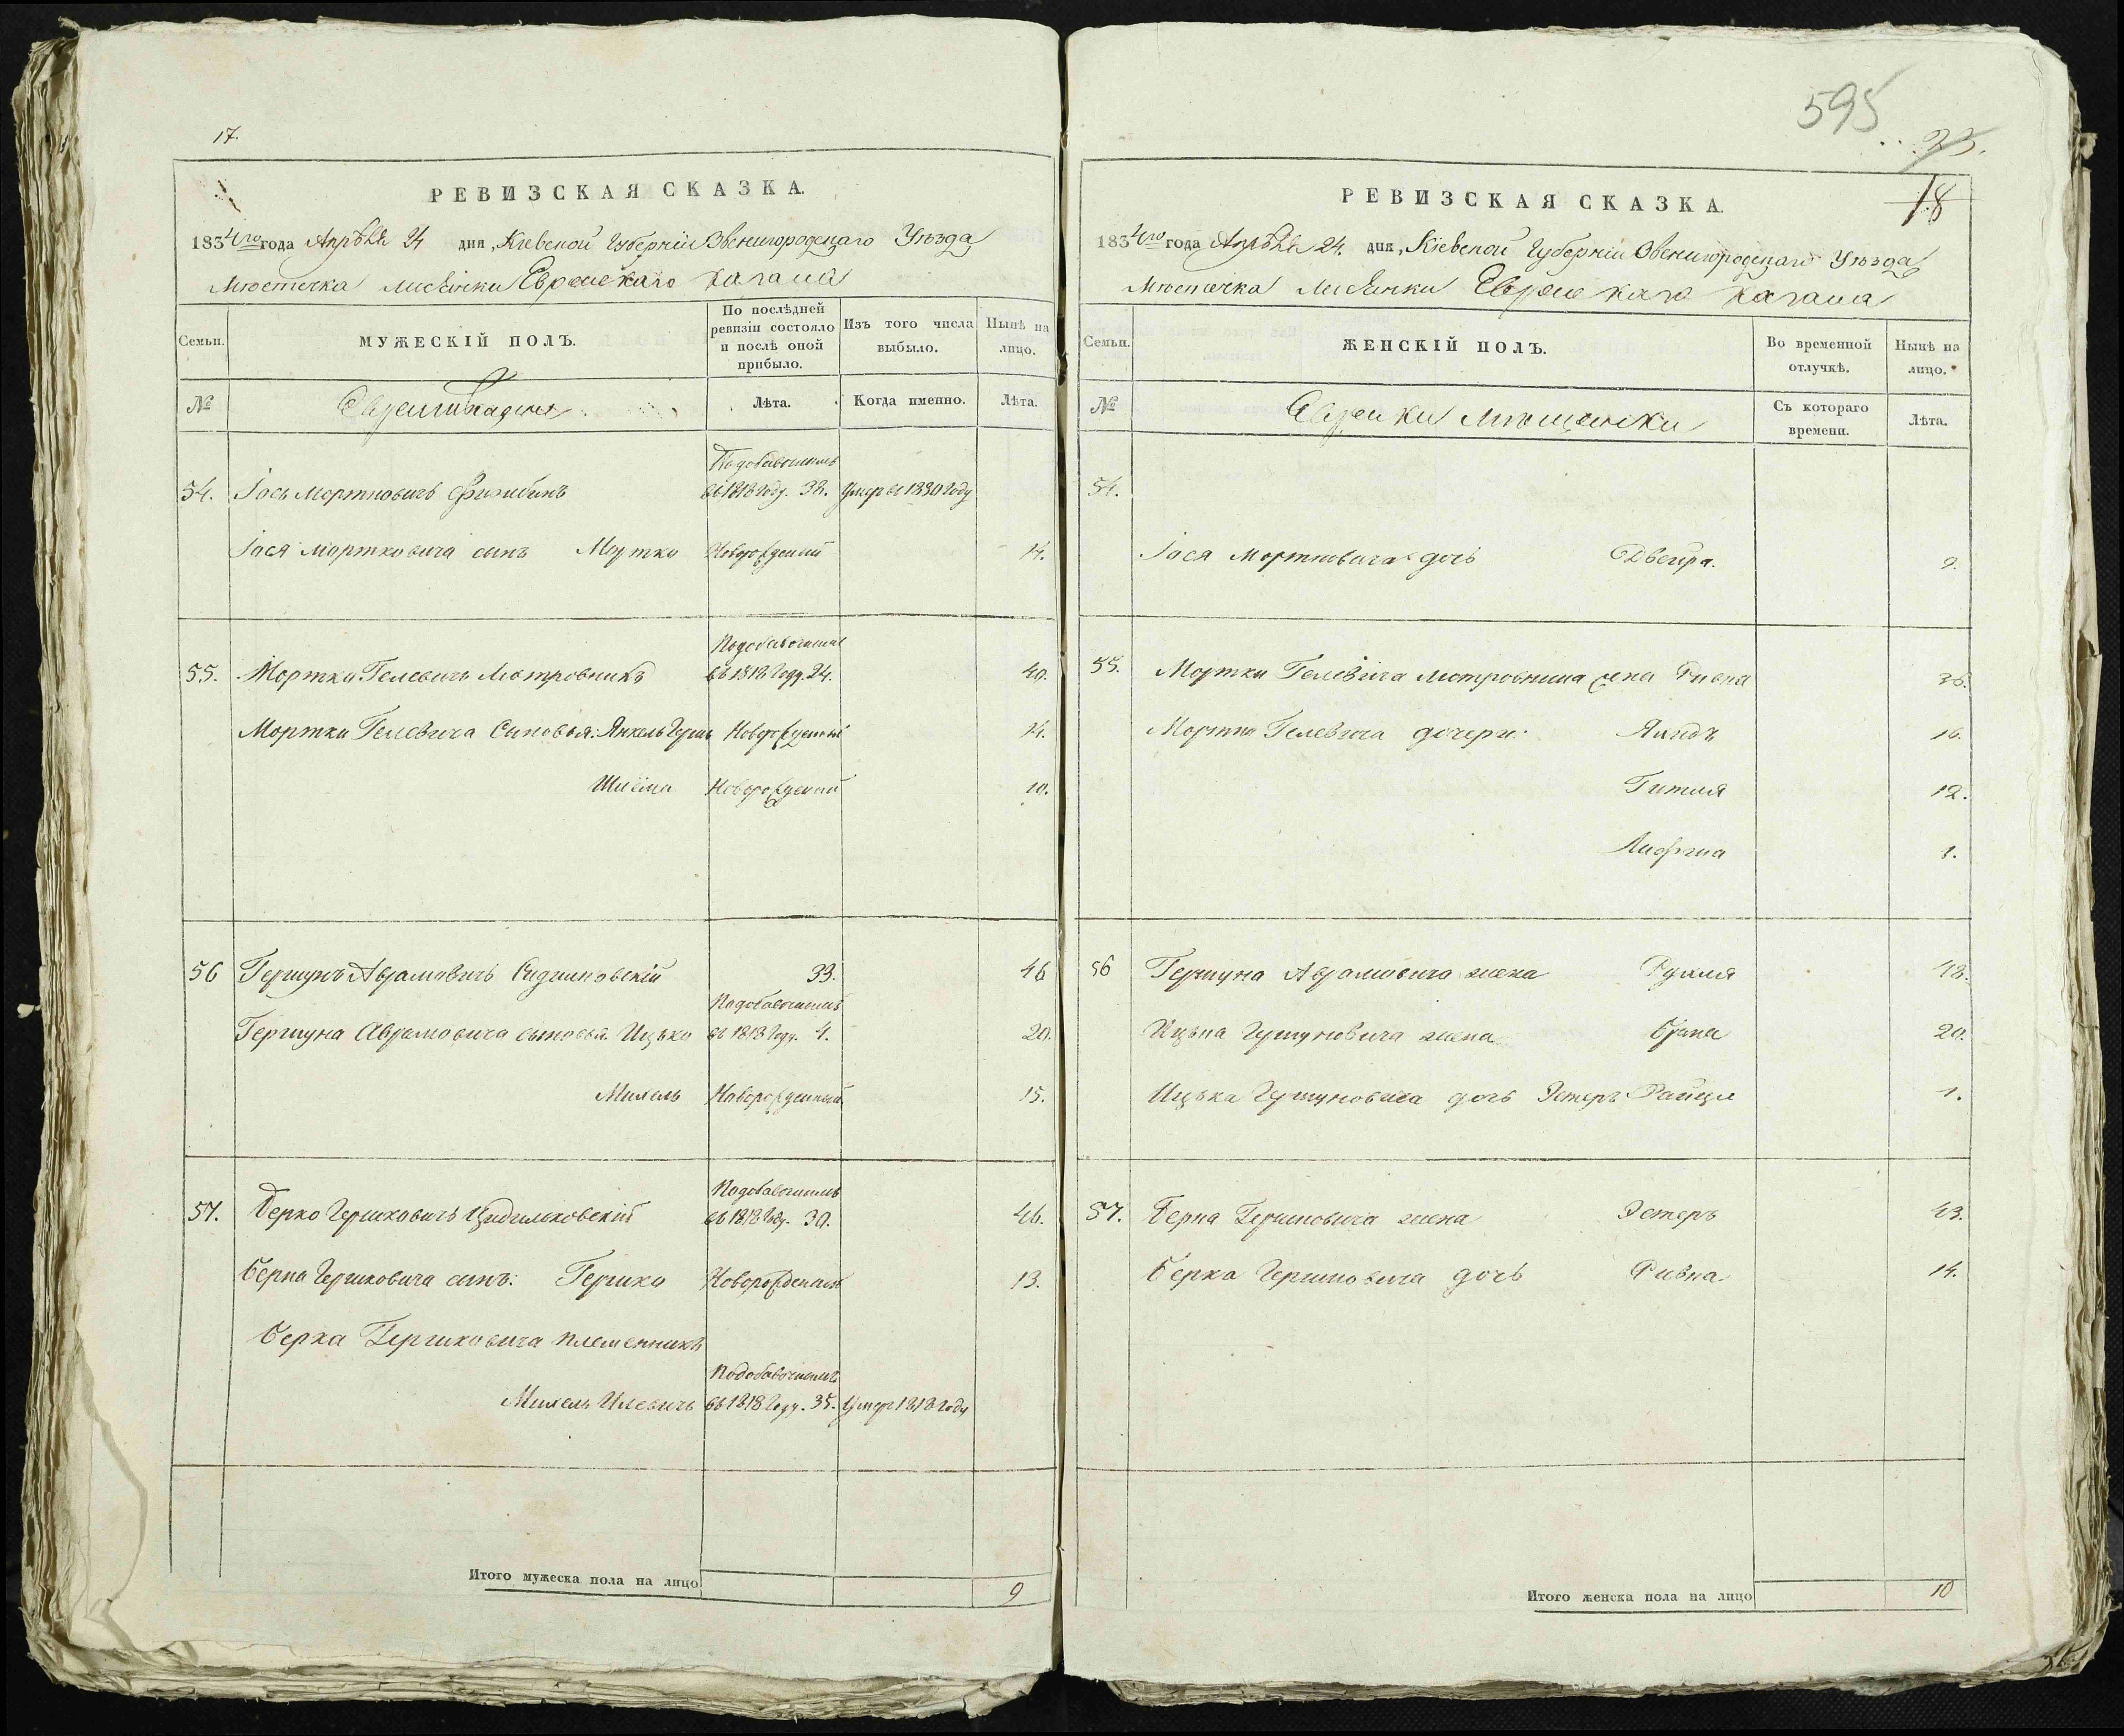 17.
РЕВИЗСКАЯ СКАЗКА.
1834го года Апрѣля 24 дня, Кіевской Губерніи Звенигородскаго Уѣзда
Мѣстечка Лисянки Еврейскаго Кагала
Семьи.
МУЖЕСКІЙ ПОЛЪ.
По послѣдней ревизіи состояло и послѣ оной прибыло.
Изъ того числа выбыло.
Нынѣ на лицо.
№
Евреи мѣщане
Лѣта.
Когда именно.
Лѣта.
54. Іось Мортковичъ
Подобавочнымъ
въ 1818 году. 32. Умеръ въ 1830 году
Іося Мортковича сынъ Мутко Новорожденный 14.
55. Мортко Гелевичъ Мотровникъ
Подобавочнымъ
въ 1818 году. 24. 40.
Мортки Гелевича Сыновья: Янкель Герш Новорожденный 14.
Шлёма Новорожденный 10.
56 Гершунъ Аврамовичъ 33. 46
Подобавочнымъ
Гершуна Аврамовича сыновья Ицько въ 1818 году. 4. 20.
Михель Новорожденный 15.
57. Берко Гершковичъ Цыдыльковскій
Подобавочнымъ
въ 1818 году. 30. 46.
Берка Гершковича сынъ: Гершко Новорожденный 13.
Берка Гершковича племенникъ
Подобавочнымъ
Михель Илевичъ въ 1818 году. 35. Умеръ 1818 году
Итого мужеска пола на лицо 9
595
25.
18
РЕВИЗСКАЯ СКАЗКА.
1834го года Апрѣля 24. дня, Кіевской Губерніи Звенигородскаго Уѣзда
Мѣстечка Лисянки Еврейскаго Кагала
Семьи.
ЖЕНСКІЙ ПОЛЪ.
Во временной отлучкѣ.
Нынѣ на лицо.
№
Еврейки мѣщанки
Съ котораго времени.
Лѣта.
54.
Іося Мортковича дочь Двейра. 9.
55. Мортки Гелевича Мотровника жена Ривка 36.
Мортки Гелевича дочери: 16.
Гитля 12.
1.
56 Гершуна Аврамовича жена Рухля 43.
Ицька Гершуновича жена 20.
Ицька Гершуновича дочь Эстеръ Райця 1.
57. Берка Гершковича жена Эстеръ 43.
Берка Гершковича дочь Ривка 14.
Итого женска пола на лицо 10